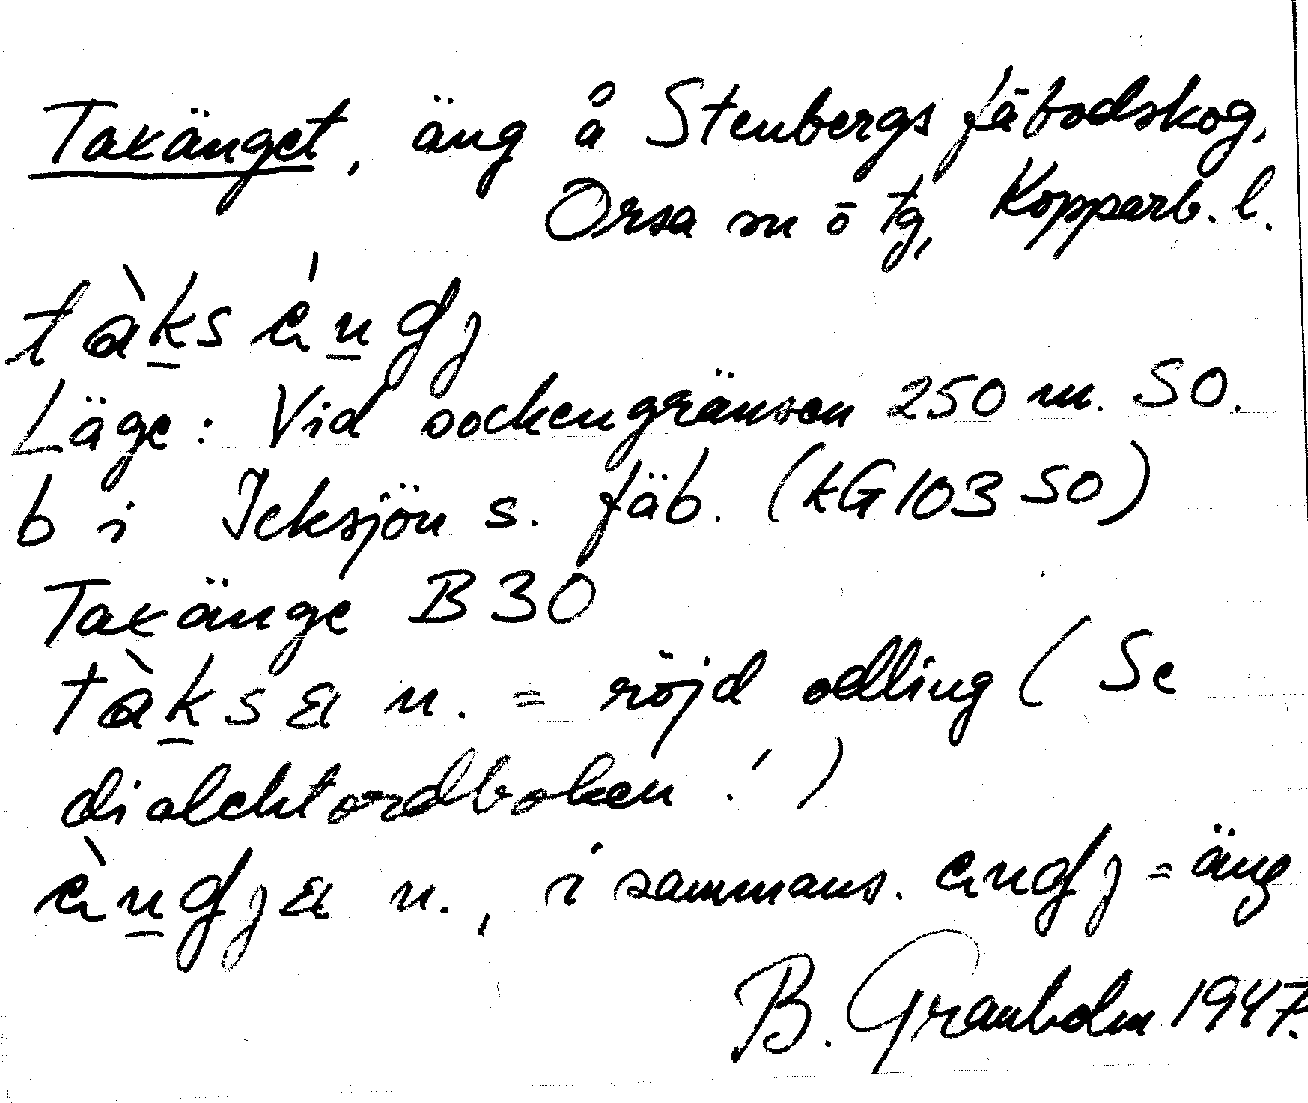 Taxänget, äng å Stenbergs fäbodskog,
Orsa sn o tg, Kopparb. l.
tàksèŋgj
Läge: Vid sockengränsen 250 m. SO.
b i Icksjön s. fäb. (kG103 SO)
Taxänge B30
tàksä n. = röjd odling (Se
dialektordboken!)
n., i sammans. = äng
B. Granholm 1947.